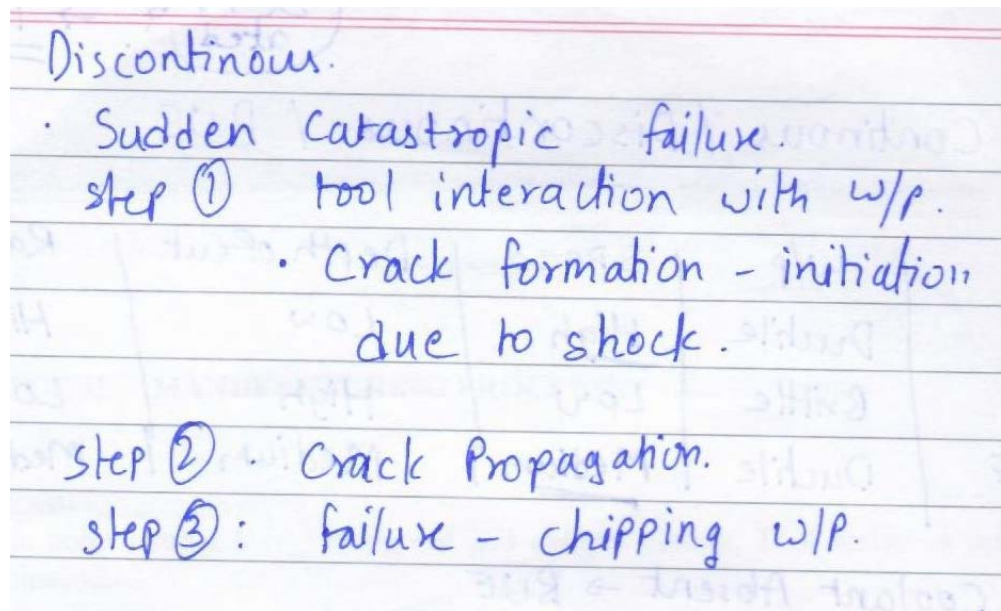 Discontinous.
· Sudden Catastropic failure.
step ① tool interaction with w/p.
· Crack formation - initiation
due to shock.
step ② · Crack Propagation.
step ③ : failure - chipping w/p